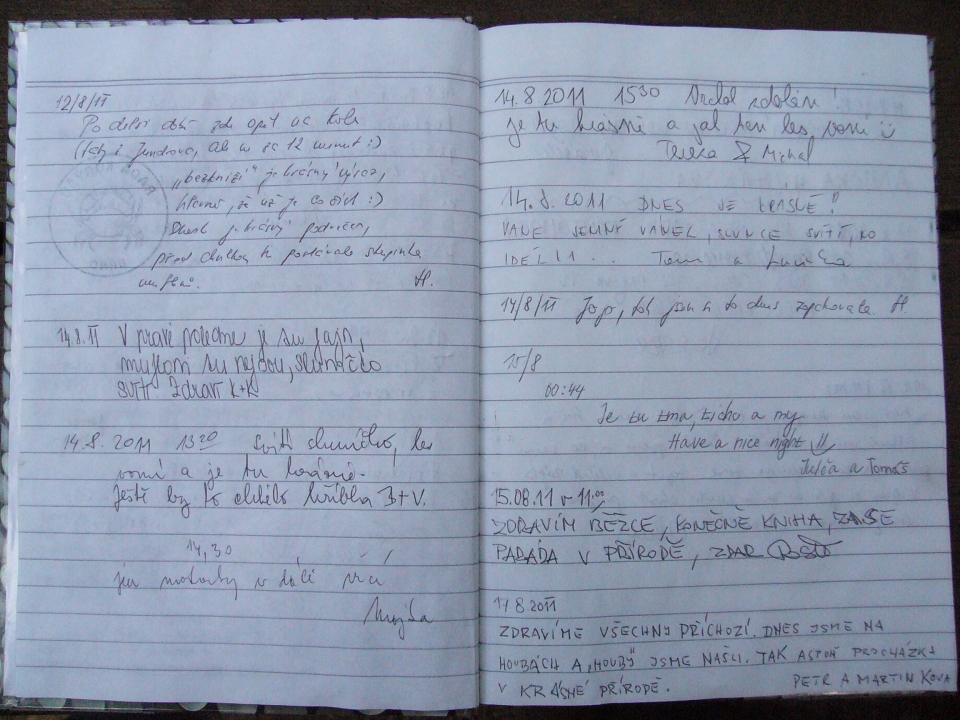 12/8/11
Po delší době zde opět na kole
(tedy z Jundrova, ale za 12 minut :)
je krásný výraz,
hlavně, že už je co číst :)
Dnes je krásný podvečer,
před chvilkou tu postávala skupinka
H.
14.8.11 V pravé poledne je tu fajn,
mužom tu nejdou, sluníčko
svítí. Zdraví K+K
14.8. 2011 13 20 Svítí sluníčko, les
voní a je tu krásně.
Ještě by to chtělo hříbka B+V.
14,30
jen motorky v dáli vrčí
Majda
14.8 2011 15 30 Vrchol zdolán!
je tu krásně a jak ten les voní ü
Tereza & Michal
14.8.2011 DNES JE KRÁSNĚ!
VANE JEMNÝ VÁNEK, SLUNCE SVÍTÍ, NO
IDEÁL!.. Tom a Lucinka
14/8/11 Jojo, tak jsem to dnes H.
15/8
00:44
Je tu tma, ticho a my
Have a nice night
Julča a Tomáš
15.08.11 v 11:00
ZDRAVÍM BĚŽCE, KONEČNĚ KNIHA, ZASE
PARÁDA V PŘÍRODĚ, ZDAR
17.8.2011
ZDRAVÍME VŠECHNY PŘÍCHOZÍ. DNES JSME NA
HOUBÁCH A „HOUBY" JSME NAŠLI. TAK ASPOŇ PROCHÁZKA
V KRÁSNÉ PŘÍRODĚ. PETR A MARTIN KOVA